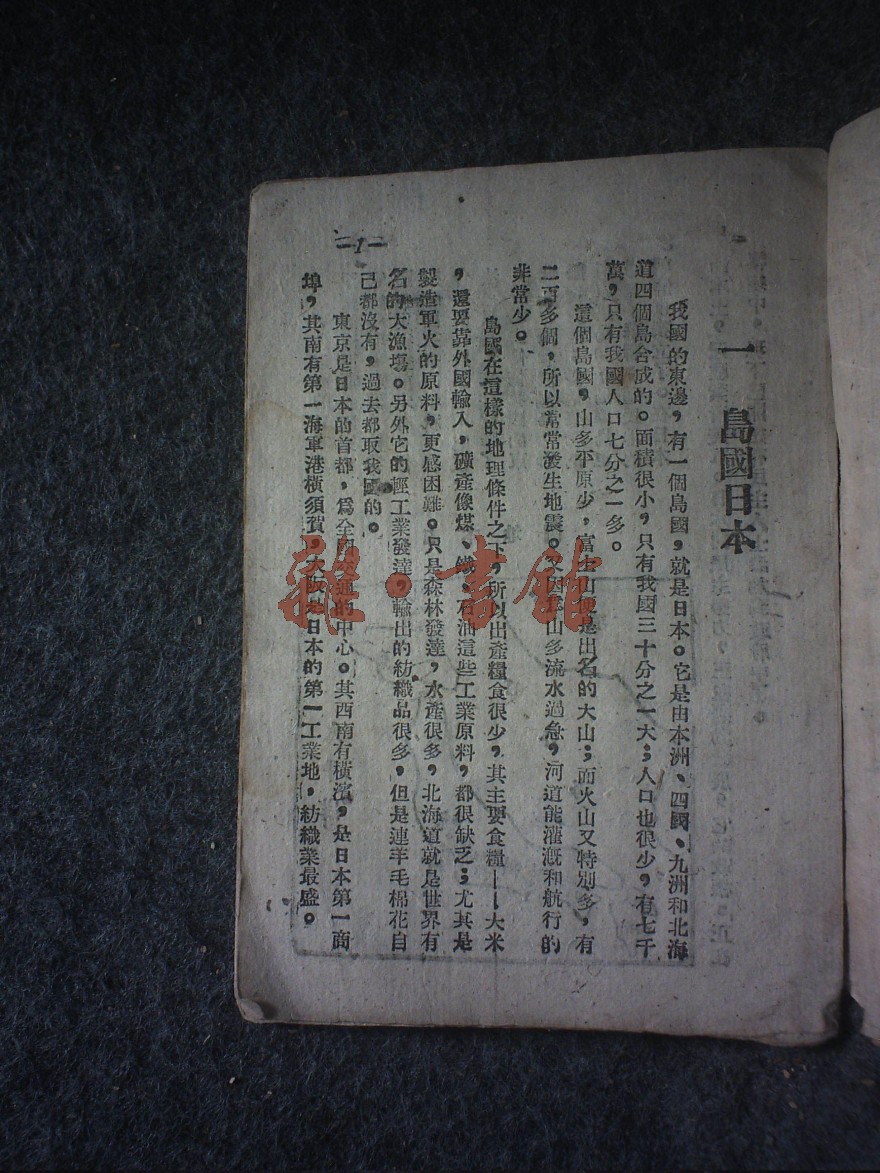 一　島國日本
我國的東邊，有一個島國，就是日本。它是由本洲、四國、九洲和北海
道四個島合成的。面積很小，只有我國三十分之一大；人口也很少，有七千
萬，只有我國人口七分之一多。
這個島國，山多平原少，富士山便是出名的大山；而火山又特別多，有
二百多個，所以常常發生地震。又因爲山多流水過急，河道能灌溉和航行的
非常少。
島國在這樣的地理條件之下，所以出產糧食很少，其主要食糧——大米
，還要靠外國輸入，礦產像煤、鐵、石油這些工業原料，都很缺乏；尤其是
製造軍火的原料，更感困難。只是森林發達，水產很多，北海道就是世界有
名的大漁場。另外它的輕工業發達，輸出的紡織品很多，但是連羊毛棉花自
己都沒有，過去都取我國的。
東京是日本的首都，爲全國交通的中心。其西南有橫濱，是日本第一商
埠，其南有第一海軍港橫須賀，大阪是日本的第一工業地，紡織業最盛。
—1—
雜·書館